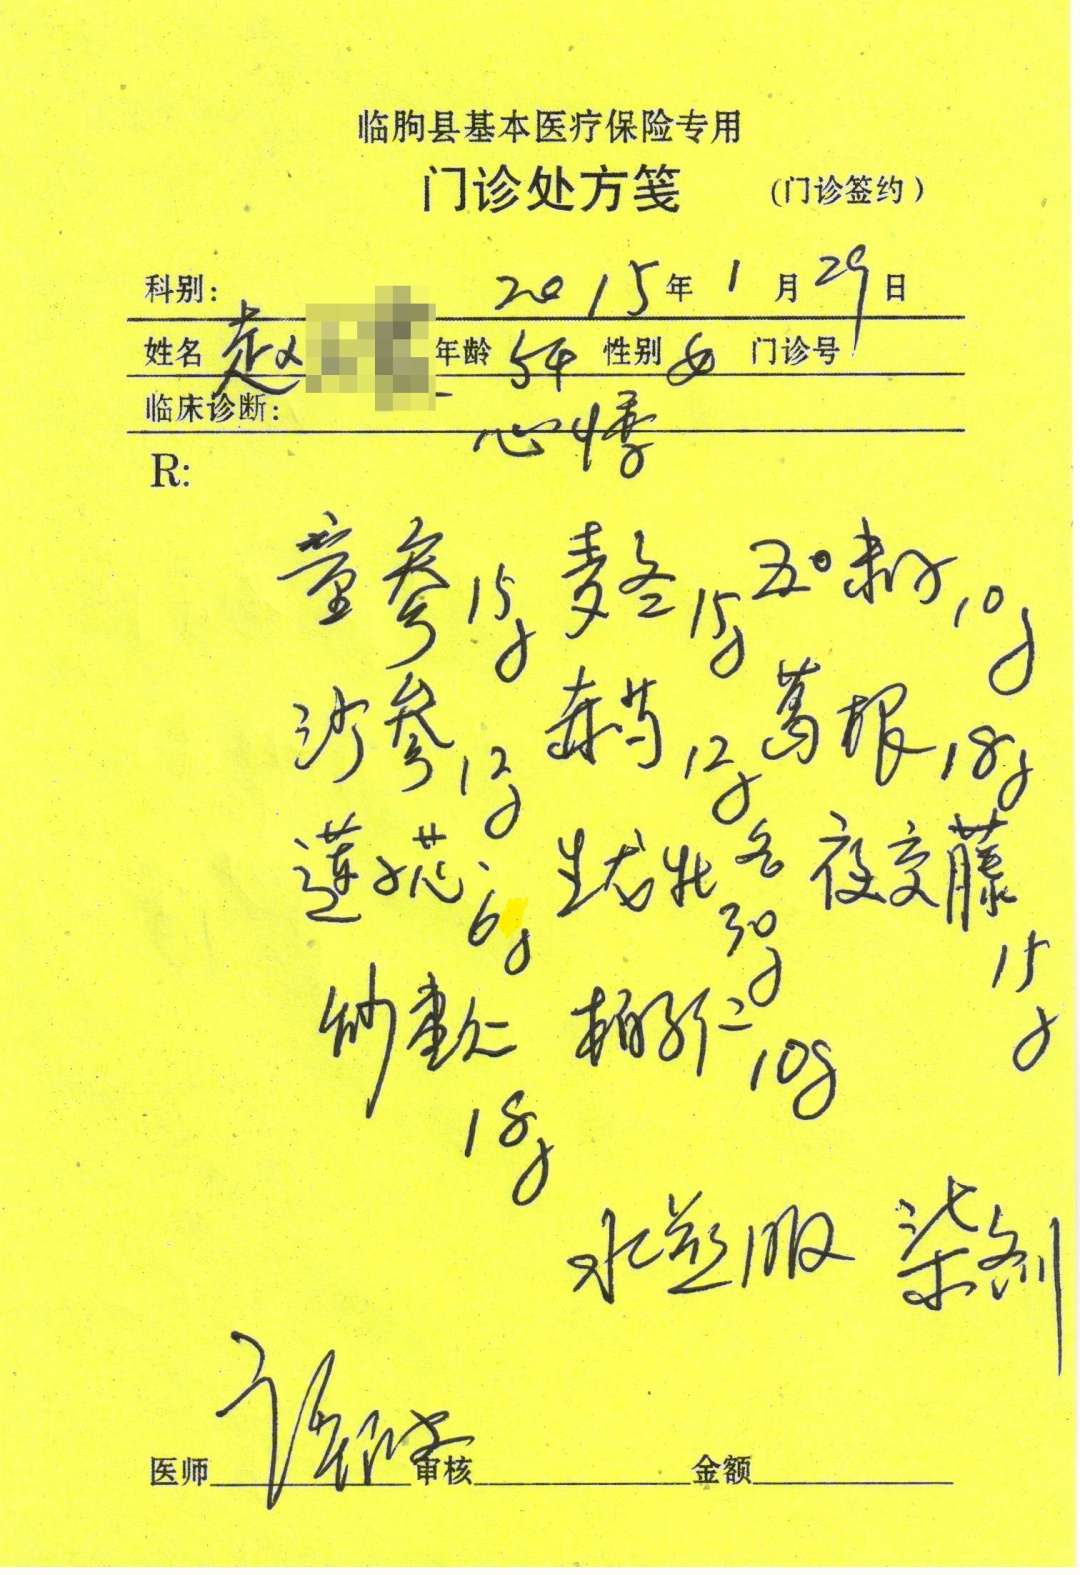 临朐县基本医疗保险专用
门诊处方笺 (门诊签约)
科别: 2015年1月29日
姓名 赵 年龄 54 性别 女 门诊号
临床诊断: 心悸
R:
童参15g 麦冬15g 五味子10g
沙参12g 赤芍12g 葛根18g
莲子芯6g 生龙牡各30g 夜交藤15g
炒枣仁18g 柏子仁10g
水煎服 柒剂
医师 审核 金额